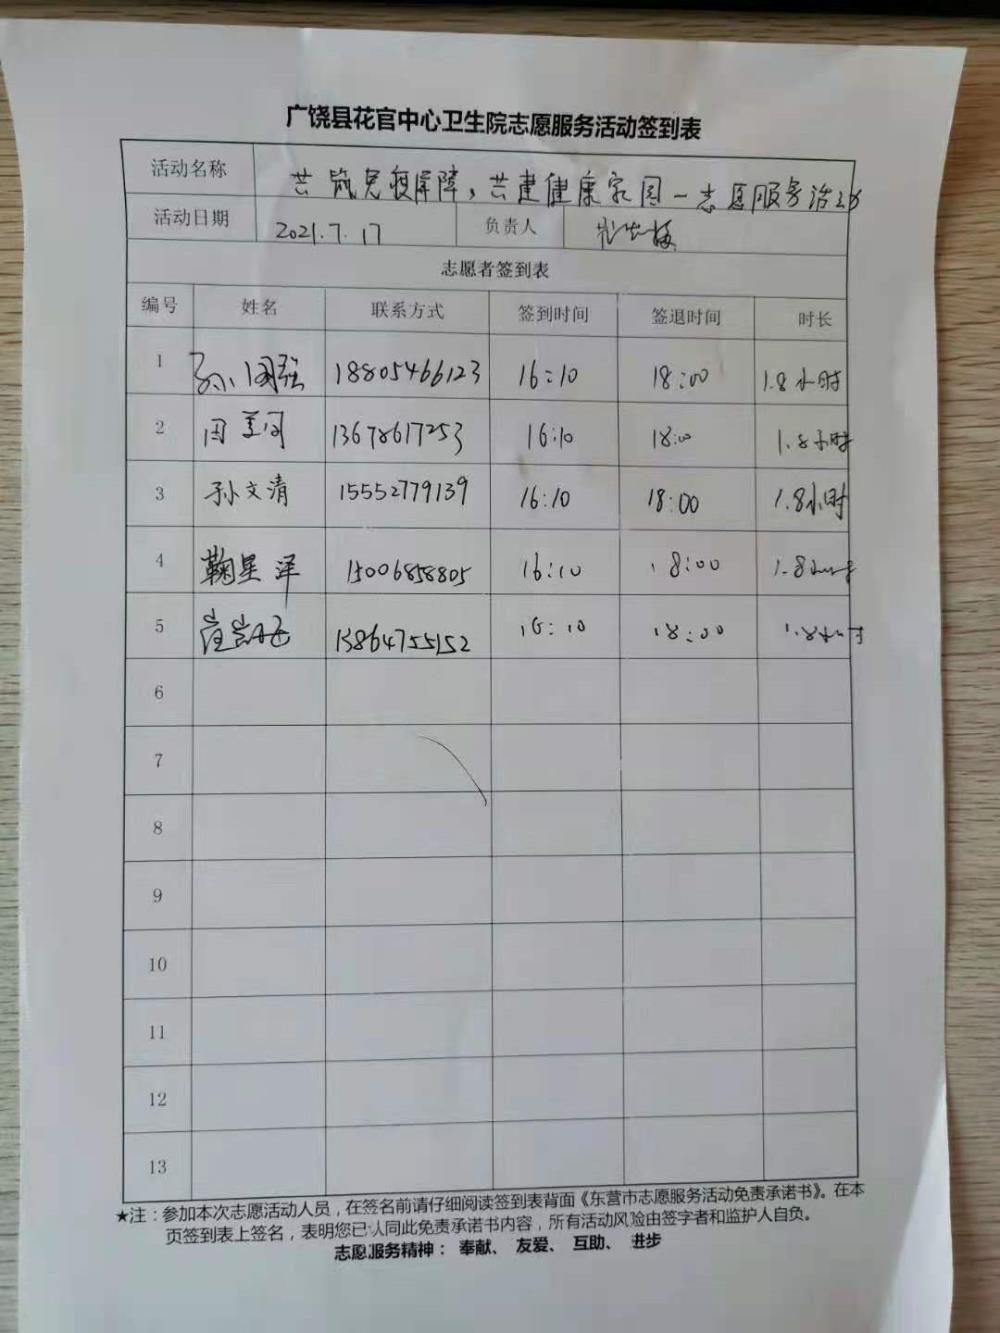 广饶县花官中心卫生院志愿服务活动签到表
活动名称 共筑免疫屏障,共建健康家园一志愿服务活动
活动日期 2021.7.17 负责人
志愿者签到表
编号 姓名 联系方式 签到时间 签退时间 时长
1 孙国强 18805466123 16:10 18:00 1.8小时
2 周 13678617253 16:10 18:00 1.8小时
3 孙文清 15552779139 16:10 18:00 1.8小时
4 鞠星洋 15006858805 16:10 18:00 1.8小时
5 13864755152 16:10 18:00 1.8小时
6
7
8
9
10
11
12
13
★注:参加本次志愿活动人员,在签名前请仔细阅读签到表背面《东营市志愿服务活动免责承诺书》。在本
页签到表上签名,表明您已认同此免责承诺书内容,所有活动风险由签字者和监护人自负。
志愿服务精神: 奉献、 友爱、 互助、 进步